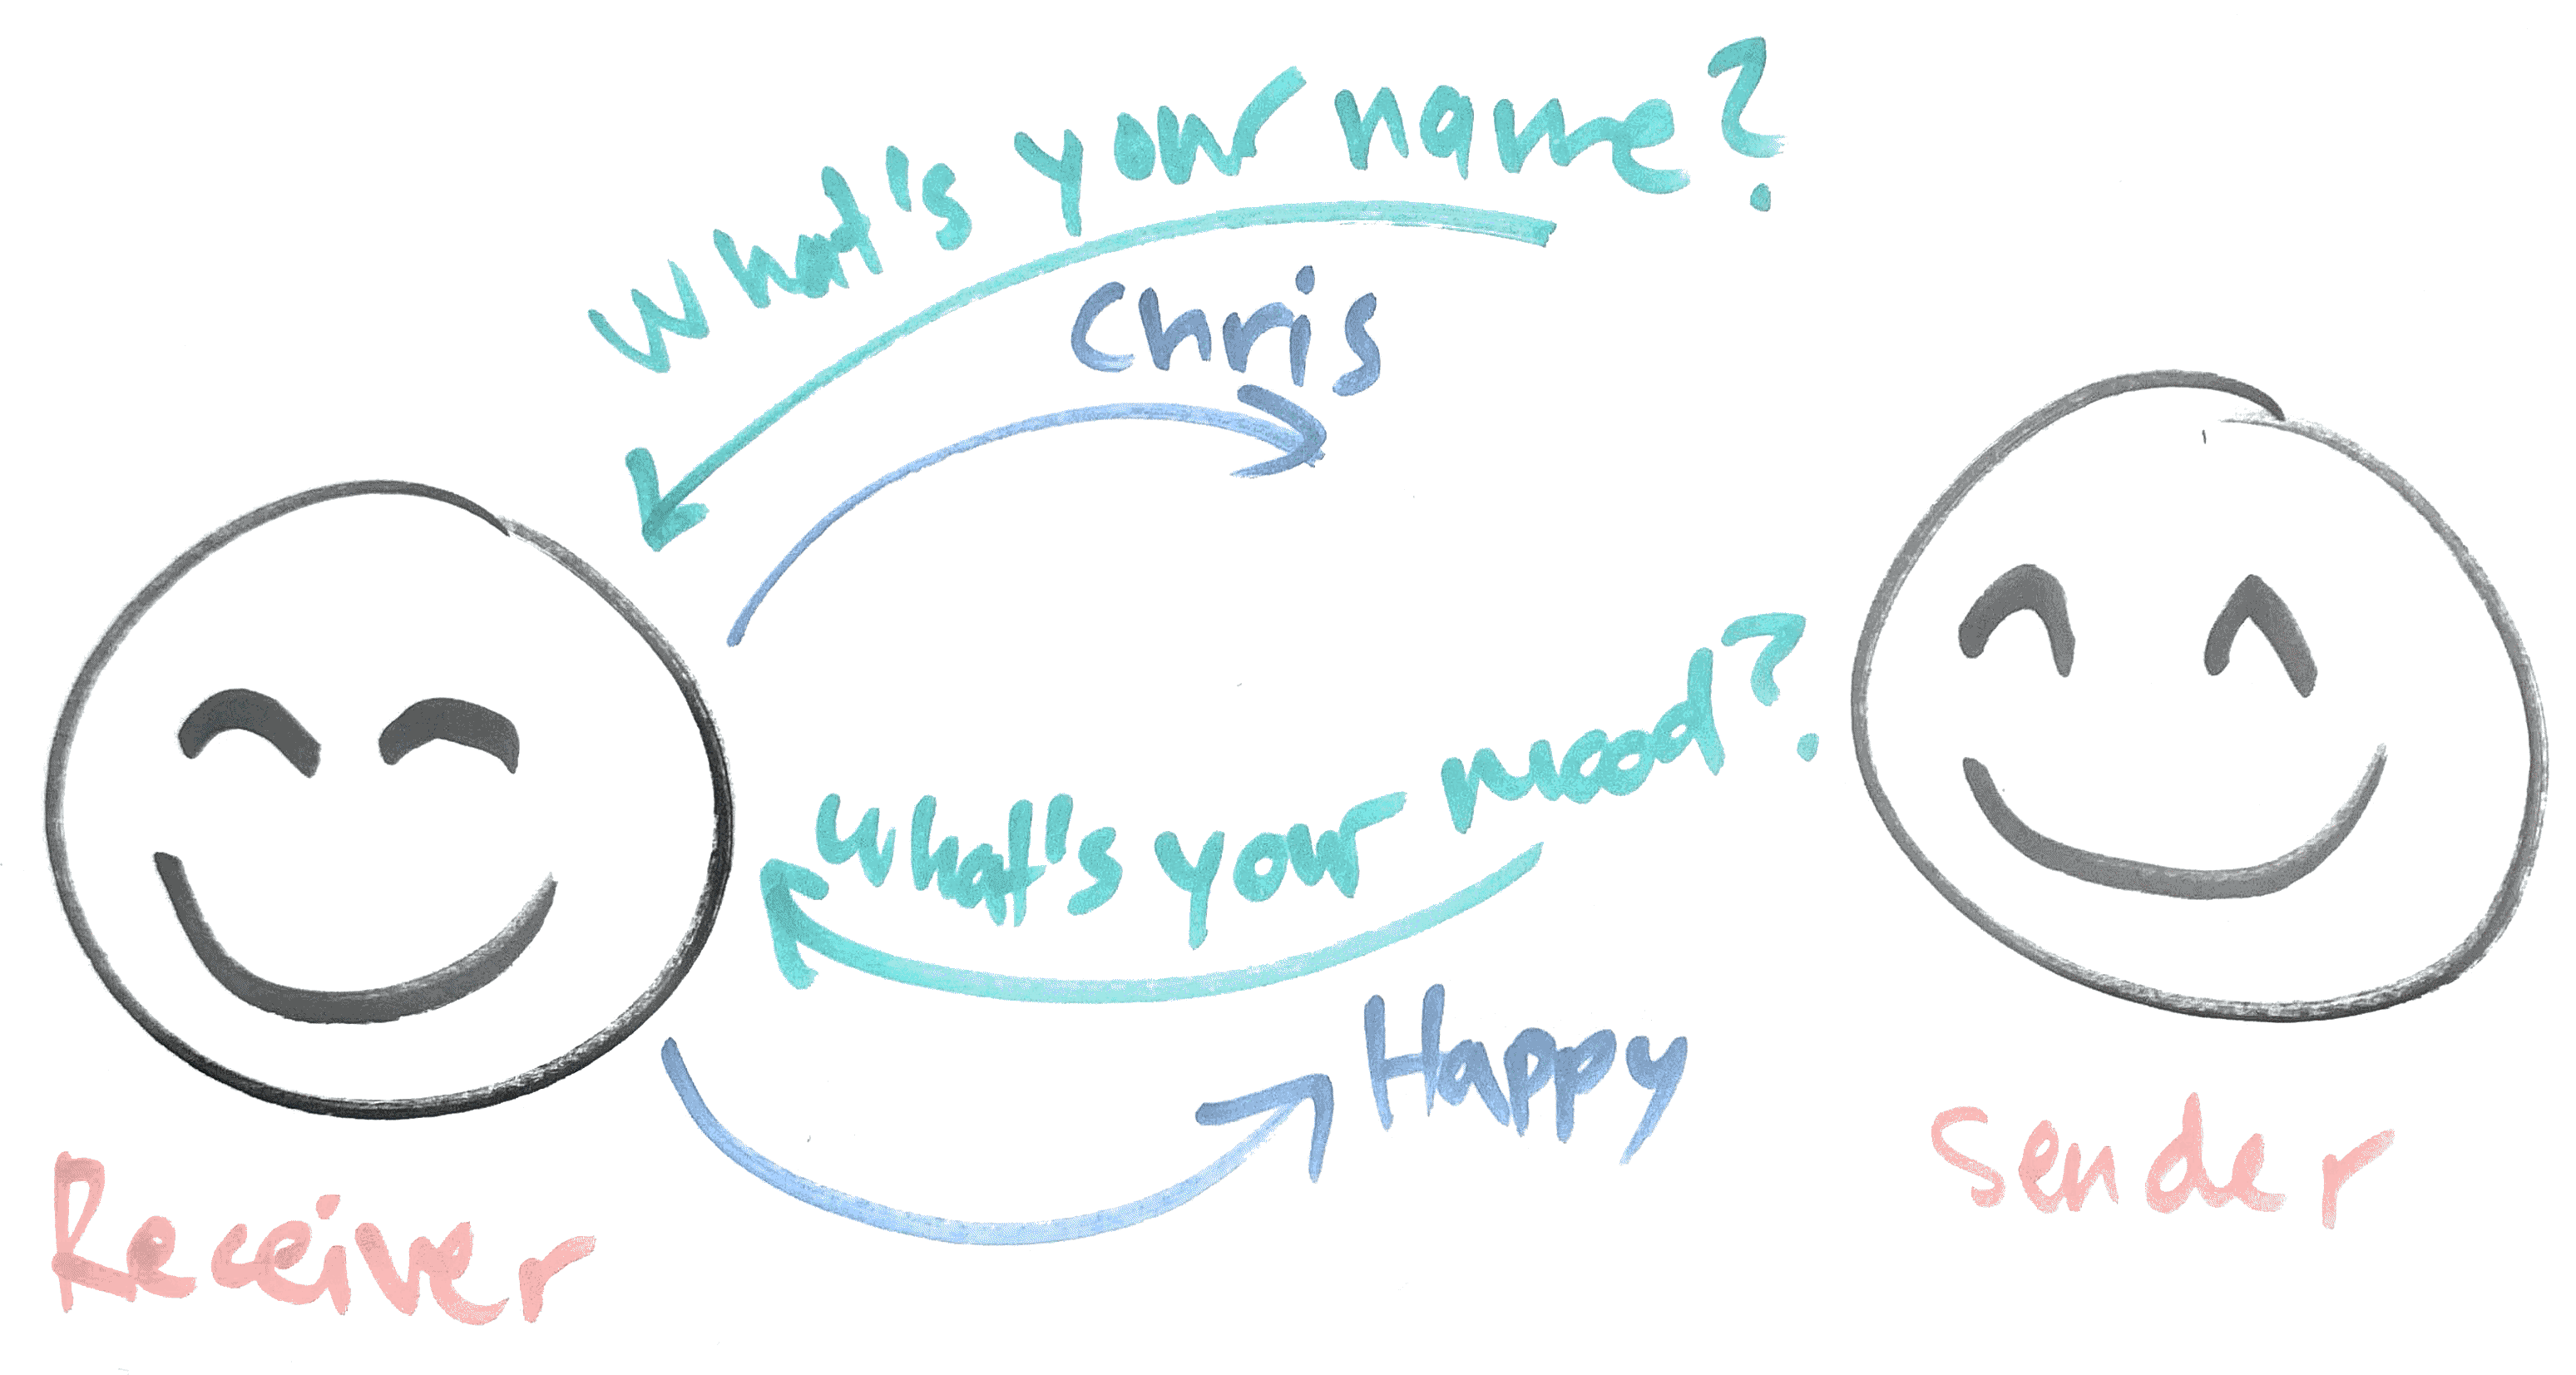 What's your name?
Chris
What's your mood?
Happy
Sender
Receiver